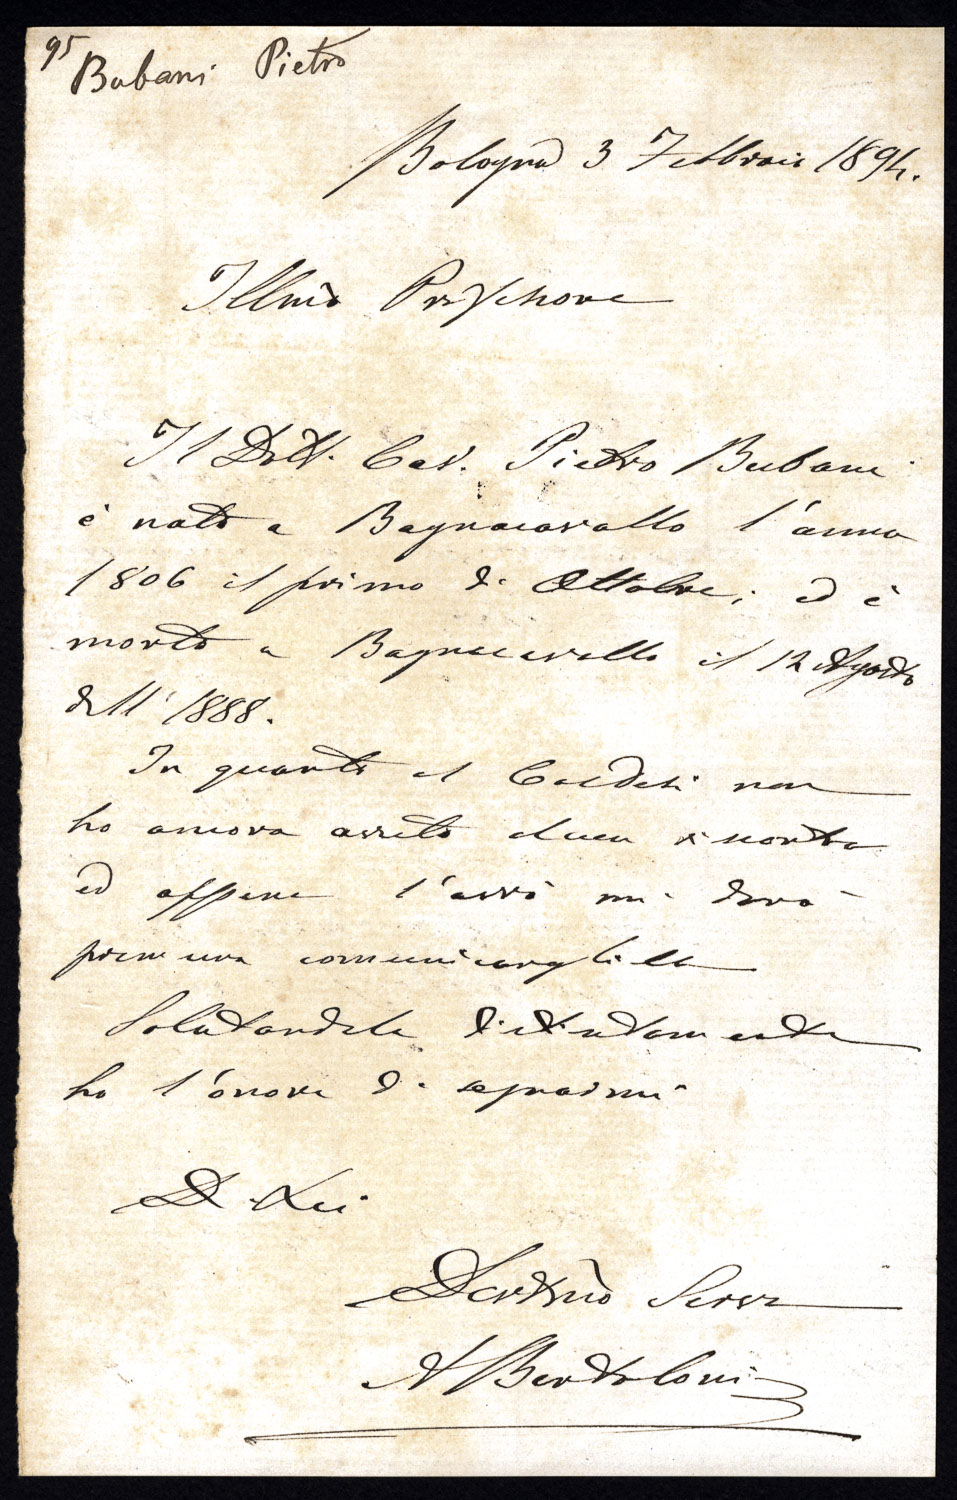 95
Bubani Pietro
Bologna 3 Febbraio 1894.
Illmo Professore
Il Dott. Cav. Pietro Bubani
è nato a Bagnacavallo l'anno
1806 il primo di Ottobre, ed è
morto a Bagnacavallo il 12 Agosto
dell' 1888.
In quanto al Caldesi non
ho ancora avuto alcuna risposta
ed appena l'avrò mi darò
premura comunicargliela
Salutandola distintamente
ho l'onore di segnarmi
Di Lei
Devotmo Servo
A Bertoloni